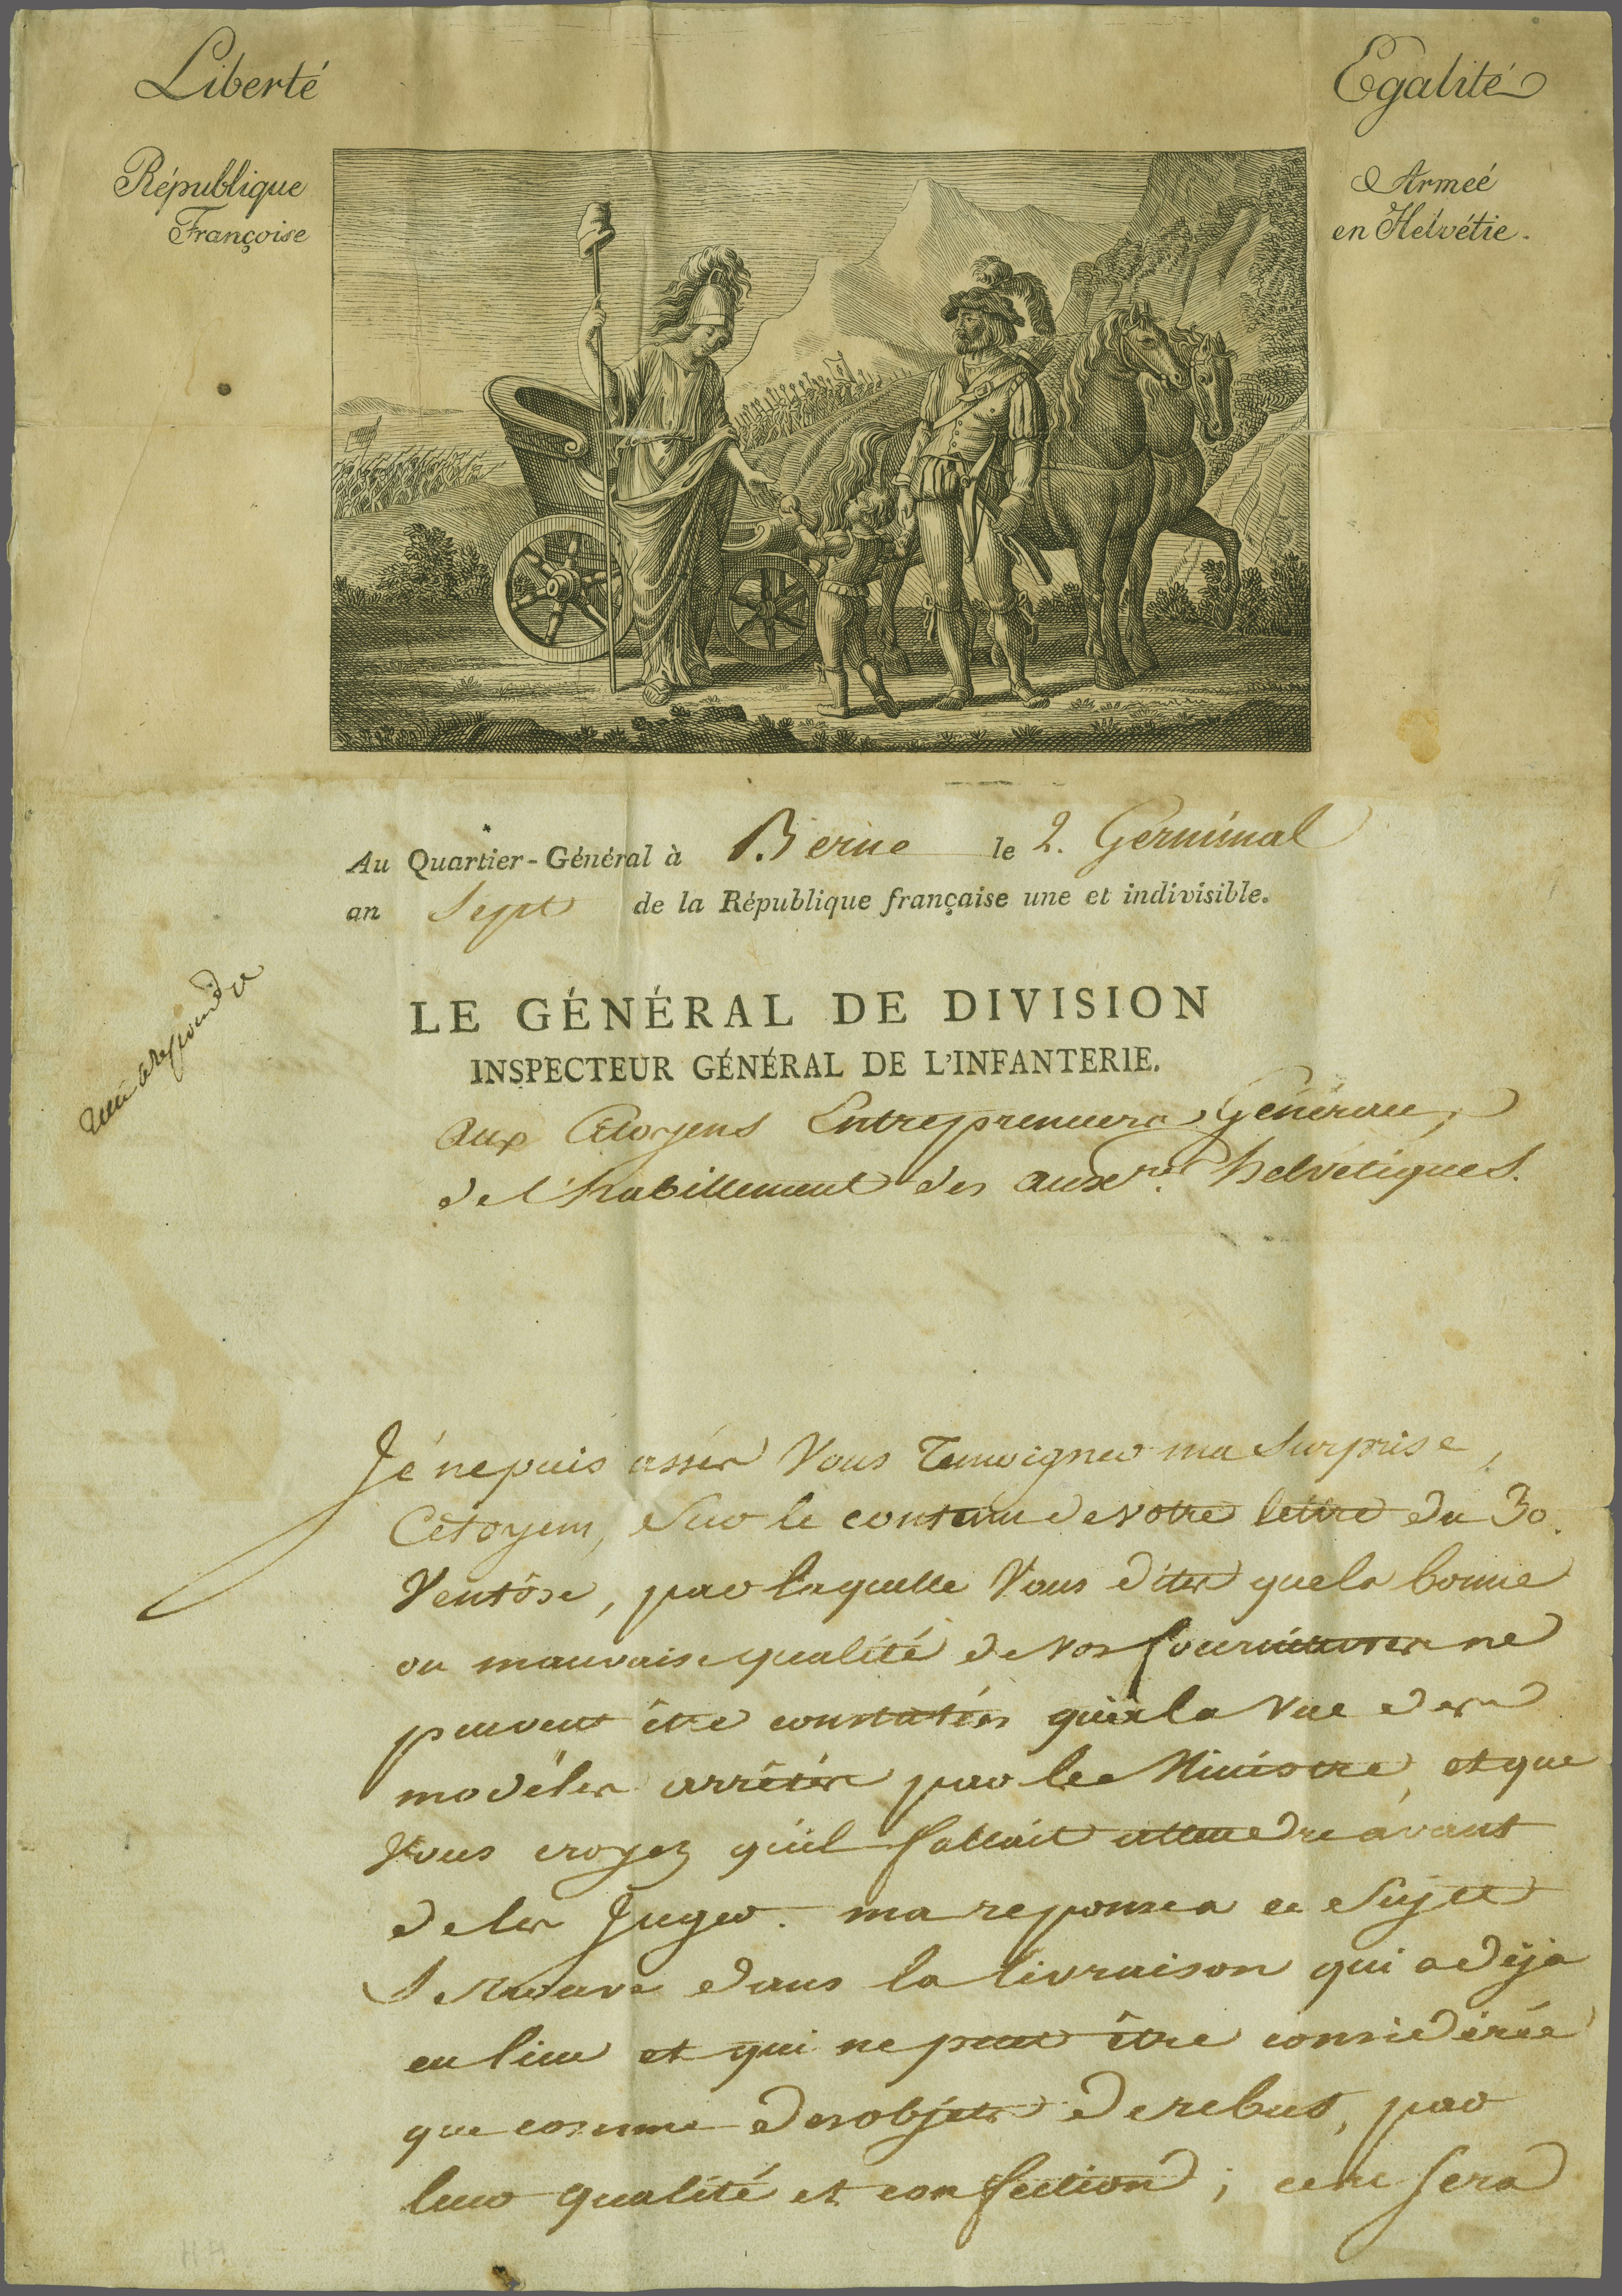 Liberté
Egalité
République
Françoise
Armeé
en Helvétie.
Au Quartier-Général à Berne le 2. Germinal
an Sept de la République française une et indivisible.
LE GÉNÉRAL DE DIVISION
INSPECTEUR GÉNÉRAL DE L'INFANTERIE.
aux Citoyens Entrepreneurs Généraux
de l'habillement des auxres. helvétiques.
Je ne puis assés Vous Temoigner ma Surprise,
Citoyens, Sur le contenu de votre lettre du 30.
Ventôse, par laquelle Vous dites que la bonne
ou mauvaise qualité de vos fournitures ne
peuvent être constatées qu'à la Vue des
modèles arrêtés par le Ministre, et que
Vous croyez qu'il fallait attendre avant
de les Juger. ma reponse a ce Sujet
Se trouve dans la livraison qui a déja
eu lieu et qui ne peut être considérée
que comme des objets de rebut, par
leur qualité et confection; ce ne sera